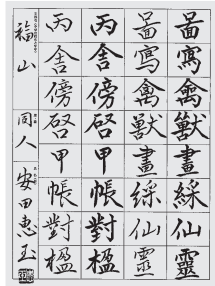 啚寫禽獸畫綵仙靈
啚寫禽獸畫綵仙靈
丙舎傍啓甲帳對楹
丙舎傍啓甲帳對楹
福山 同人 安田恵玉